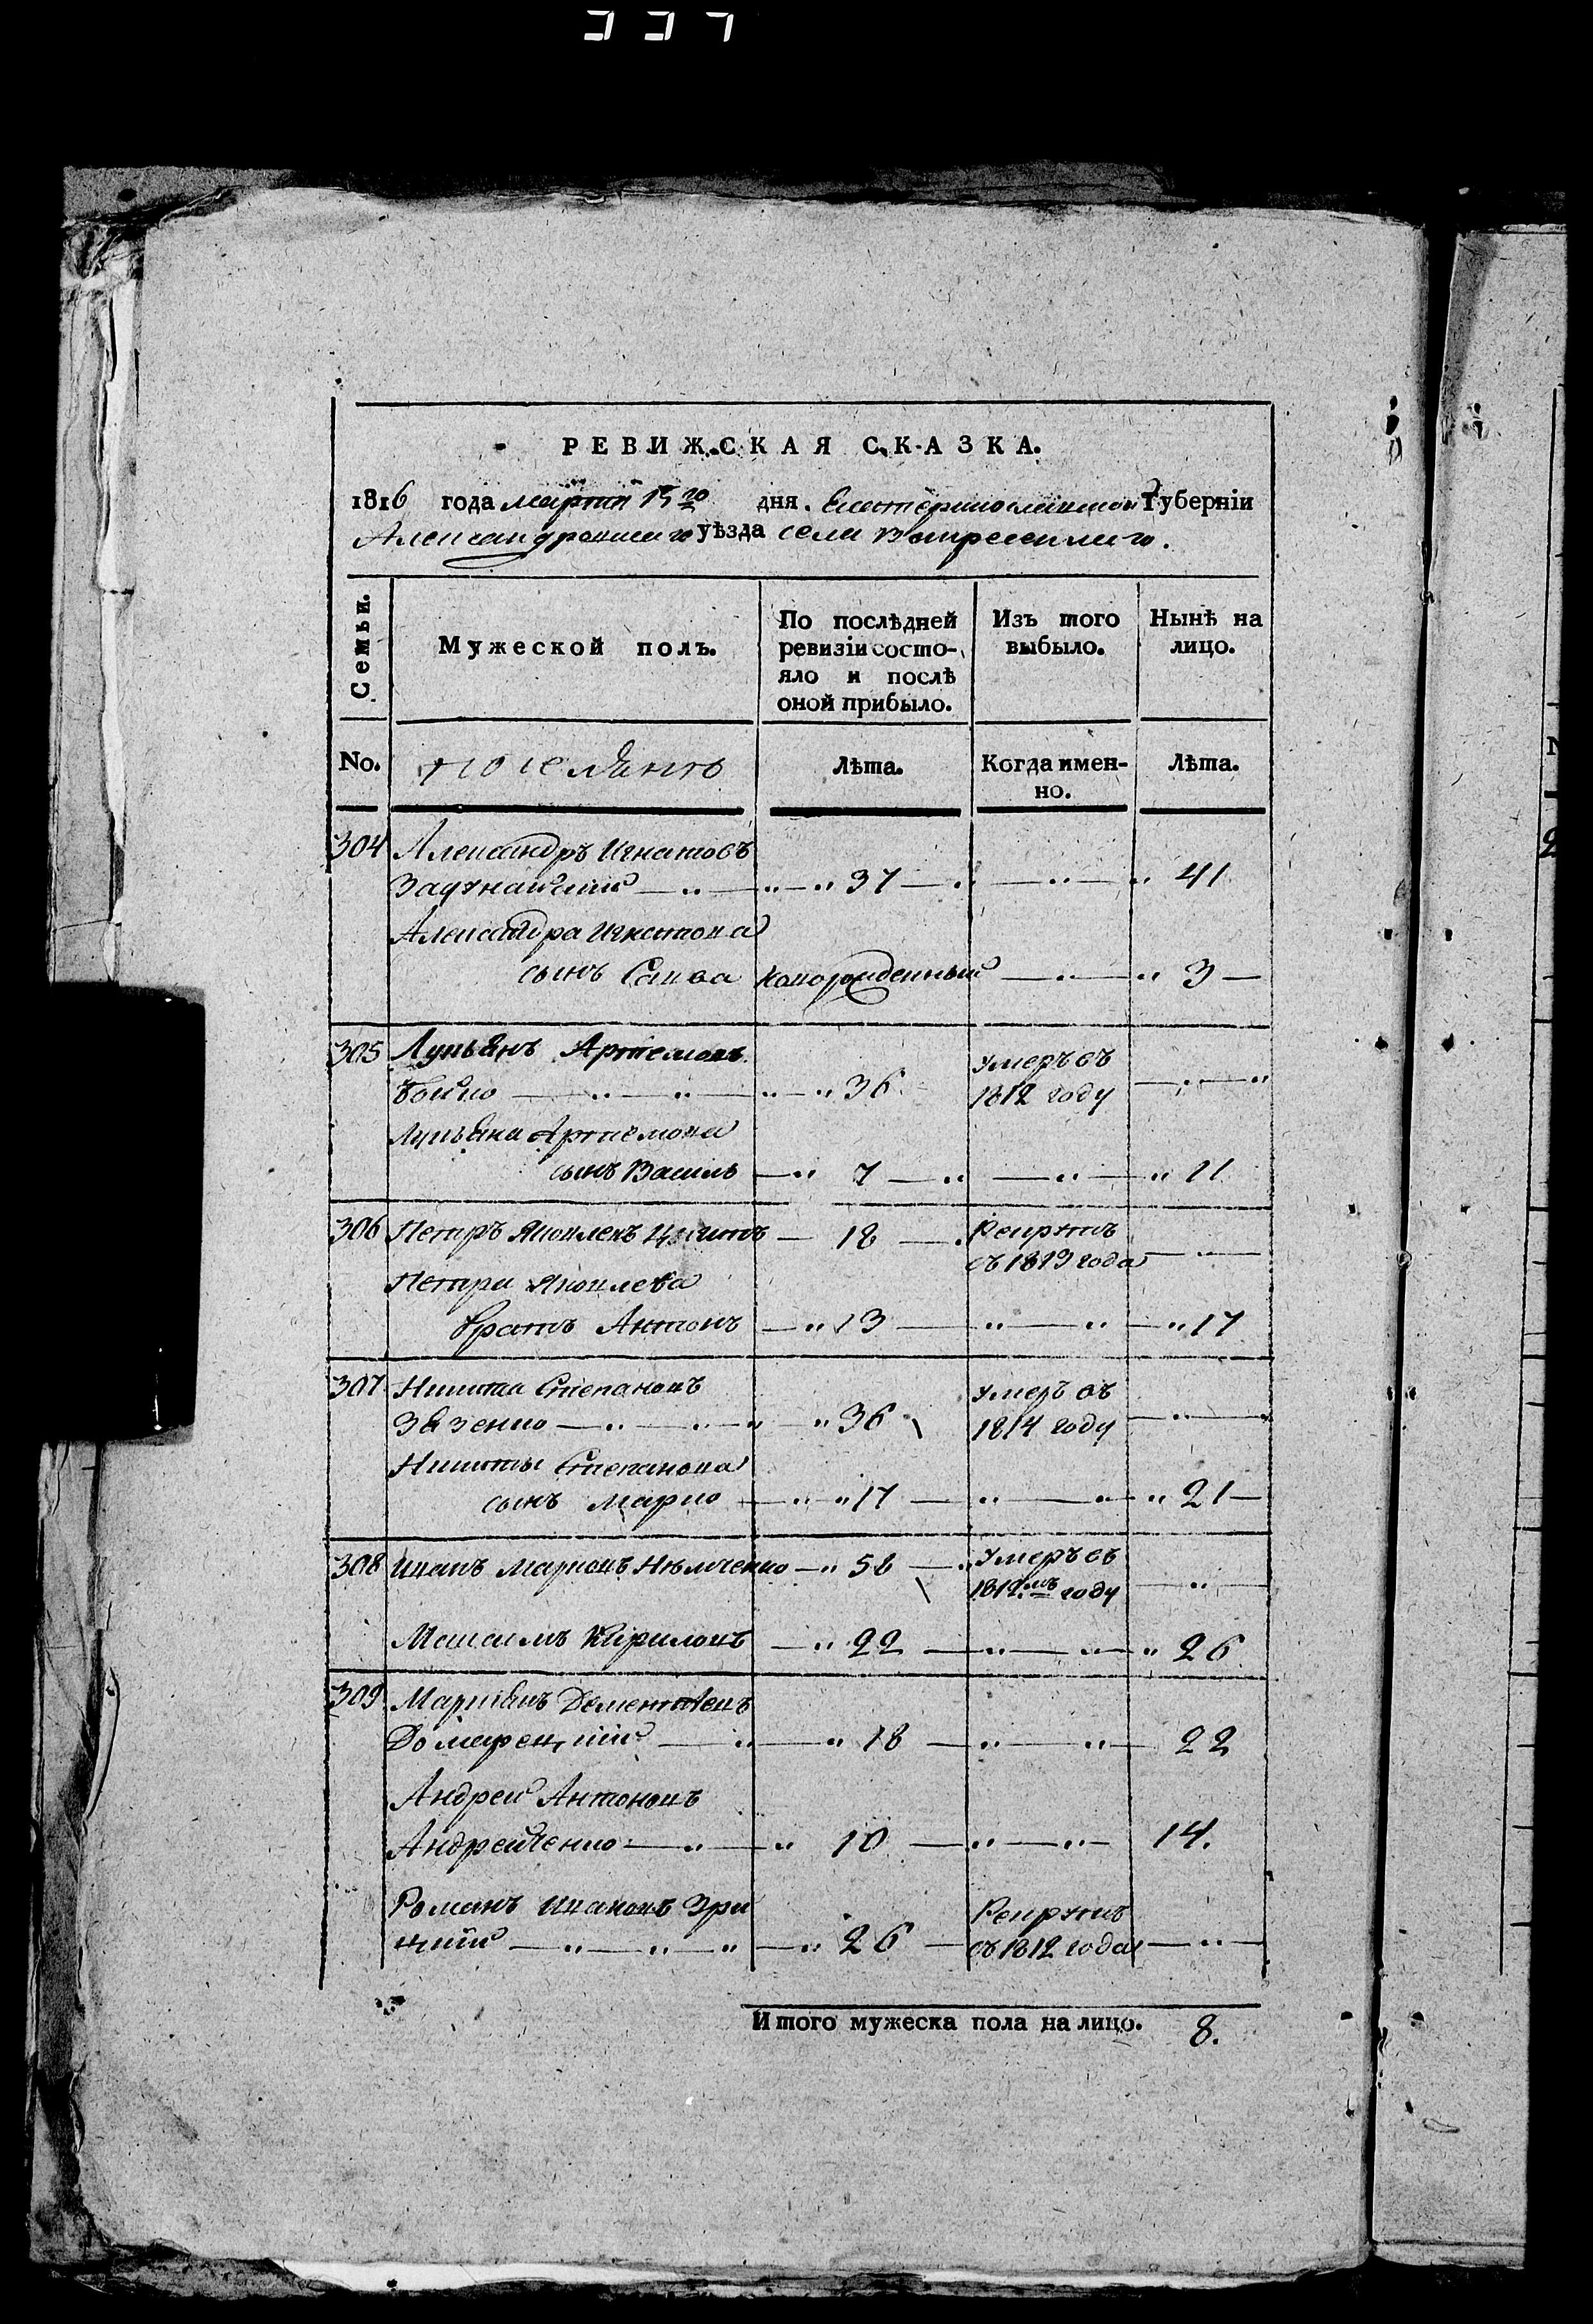 РЕВИЖСКАЯ СКАЗКА.
1816 года марта 15го дня. Екатеринославской Губерніи
Александровскаго уѣзда села Воскресенскаго.
Семьи.
Мужеской полъ.
По послѣдней ревизіи состояло и послѣ оной прибыло.
Изъ того выбыло.
Нынѣ на лицо.
No.
поселянъ
Лѣта.
Когда именно.
Лѣта.
304 Александръ Игнатовъ
Задунайскій 37 41
Александра Игнатова
сынъ Савва новорожденный 3
305 Лукьянъ Артемовъ Умеръ въ
Бойко 36 1812 году
Лукьяна Артемова
сынъ Василь 7 11
306 Петръ Яковлевъ 18 Рекрутъ
съ 1813 года
Петра Яковлева
братъ Антонъ 13 17
307 Никита Степановъ Умеръ въ
Зязенко 36 1814 году
Никиты Степанова
сынъ Марко 17 21
308 Иванъ Марковъ Нѣмченко 58 Умеръ въ
1812мъ году
Максимъ Кириловъ 22 26
309 Маркіянъ Дементіевъ
18 22
Андрей Антоновъ
Андрейченко 10 14.
Романъ Ивановъ Зри Рекрутъ
цкій 26 съ 1812 года
Итого мужеска пола на лицо. 8.